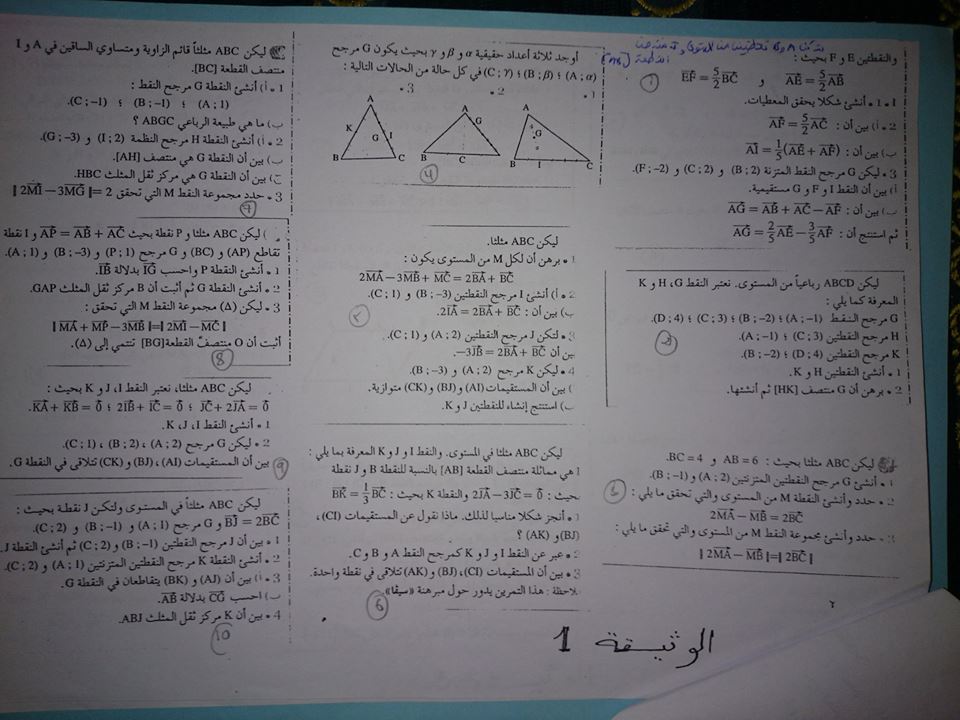 والنقطتين E و F بحيث :
AE = 5/2 AB و EF = 5/2 BC
1 • أنشئ شكلا يحقق المعطيات.
2 • أ) بين أن : AF = 5/2 AC
ب) بين أن : AI = 1/5 (AE + AF)
3 • ليكن G مرجح النقط المتزنة (B ; 2) و (C ; 2) و (F ; −2).
أ) بين أن النقط I و F و G مستقيمية.
ب) بين أن : AG = AB + AC − AF
ثم استنتج أن : AG = 2/5 AE − 3/5 AF
1
ليكن ABCD رباعياً من المستوى. نعتبر النقط G، H و K
المعرفة كما يلي :
G مرجح النقط (A ; −1) ؛ (B ; −2) ؛ (C ; 3) ؛ (D ; 4).
H مرجح النقطتين (C ; 3) ؛ (A ; −1).
K مرجح النقطتين (D ; 4) ؛ (B ; −2).
1 • أنشئ النقطتين H و K.
2 • برهن أن G منتصف [HK] ثم أنشئها.
ليكن ABC مثلثا بحيث : AB = 6 و BC = 4.
1 • أنشئ G مرجح النقطتين المتزنتين (A ; 2) و (B ; −1).
2 • حدد وأنشئ النقطة M من المستوى والتي تحقق ما يلي :
2MA − MB = 2BC
3 • حدد وأنشئ مجموعة النقط M من المستوى والتي تحقق ما يلي :
|| 2MA − MB || = || 2BC ||
٢
أوجد ثلاثة أعداد حقيقية α و β و γ بحيث يكون G مرجح
(A ; α) ؛ (B ; β) ؛ (C ; γ) في كل حالة من الحالات التالية :
1 • 2 • 3 •
A K G I B C
A G B C
A G B I C
4
ليكن ABC مثلثا.
1 • برهن أن لكل M من المستوى يكون :
2MA − 3MB + MC = 2BA + BC
2 • أ) أنشئ I مرجح النقطتين (B ; −3) ؛ (C ; 1).
ب) بين أن : 2IA = 2BA + BC.
3 • لتكن J مرجح النقطتين (A ; 2) ؛ (C ; 1).
بين أن −3JB = 2BA + BC.
4 • ليكن K مرجح (A ; 2) ؛ (B ; −3).
أ) بين أن المستقيمات (AI) و (BJ) و (CK) متوازية.
ب) استنتج إنشاء للنقطتين J و K.
ليكن ABC مثلثا في المستوى. والنقط I و J و K المعرفة بما يلي :
I هي مماثلة منتصف القطعة [AB] بالنسبة للنقطة B و J نقطة
بحيث : 2JA − 3JC = 0 والنقطة K بحيث : BK = 1/3 BC
1 • أنجز شكلا مناسبا لذلك. ماذا نقول عن المستقيمات (CI)،
(BJ) و (AK) ؟
2 • عبر عن النقط I و J و K كمرجح النقط A و B و C.
3 • بين أن المستقيمات (CI)، (BJ) و (AK) تتلاقى في نقطة واحدة.
ملاحظة : هذا التمرين يدور حول مبرهنة «سيفا».
6
ليكن ABC مثلثاً قائم الزاوية ومتساوي الساقين في A و I
منتصف القطعة [BC].
1 • أ) أنشئ النقطة G مرجح النقط :
(A ; 1) ؛ (B ; −1) ؛ (C ; −1).
ب) ما هي طبيعة الرباعي ABGC ؟
2 • أ) أنشئ النقطة H مرجح النظمة (I ; 2) و (G ; −3).
ب) بين أن النقطة G هي منتصف [AH].
ج) بين أن النقطة G هي مركز ثقل المثلث HBC.
3 • حدد مجموعة النقط M التي تحقق || 2MI − 3MG || = 2
ليكن ABC مثلثا و P نقطة بحيث AP = AB + AC و I نقطة
تقاطع (AP) و (BC) و G مرجح (P ; 1) و (B ; −3) و (A ; 1).
1 • أنشئ النقطة P واحسب IG بدلالة IB.
2 • أنشئ النقطة G ثم أثبت أن B مركز ثقل المثلث GAP.
3 • ليكن (Δ) مجموعة النقط M التي تحقق :
|| MA + MP − 3MB || = || 2MI − MC ||
أثبت أن O منتصف القطعة [BG] تنتمي إلى (Δ).
8
ليكن ABC مثلثا، نعتبر النقط I، J و K بحيث :
JC + 2JA = 0 ؛ 2IB + IC = 0 ؛ KA + KB = 0.
1 • أنشئ النقط I، J، K.
2 • ليكن G مرجح (A ; 2)، (B ; 2)، (C ; 1).
بين أن المستقيمات (AI)، (BJ) و (CK) تتلاقى في النقطة G.
9
ليكن ABC مثلثاً في المستوى ولتكن J نقطة بحيث :
BJ = 2BC و G مرجح (A ; 1) و (B ; −1) و (C ; 2).
1 • بين أن J مرجح النقطتين (B ; −1) و (C ; 2) ثم أنشئ النقطة J.
2 • أنشئ النقطة K مرجح النقطتين المتزنتين (A ; 1) و (C ; 2).
3 • أ) بين أن (AJ) و (BK) يتقاطعان في النقطة G.
ب) احسب CG بدلالة AB.
4 • بين أن K مركز ثقل المثلث ABJ.
10
الوثيقة 1